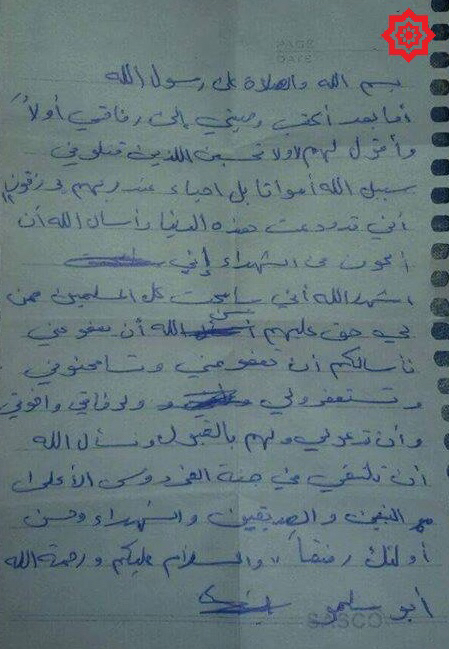 PAGE
DATE
بسم الله والصلاة على رسول الله
أما بعد أكتب وصيتي إلى رفاقي أولاً
وأقول لهم لا تحسبن اللذين قتلو في
سبيل الله أمواتا بل احياء عند ربهم يرزقون
أني قد ودعت هذه الدنيا وأسأل الله أن
أكون من الشهداء إني
اشهد الله أني سامحت كل المسلمين ممن
لي حق عليهم الله أن يعفو عني
نأسالكم أن تعفو عني وتسامحوني
وتستغفرو لي و ولرفاقي واخوتي
وأن تدعو لي ولهم بالقبول ونسأل الله
أن نلتقي في جنة الفردوس الأعلى
مع النبيين والصديقين والشهداء وحسن
أولئك رفيقاً ,, والسلام عليكم ورحمة الله
أبو
SASCO